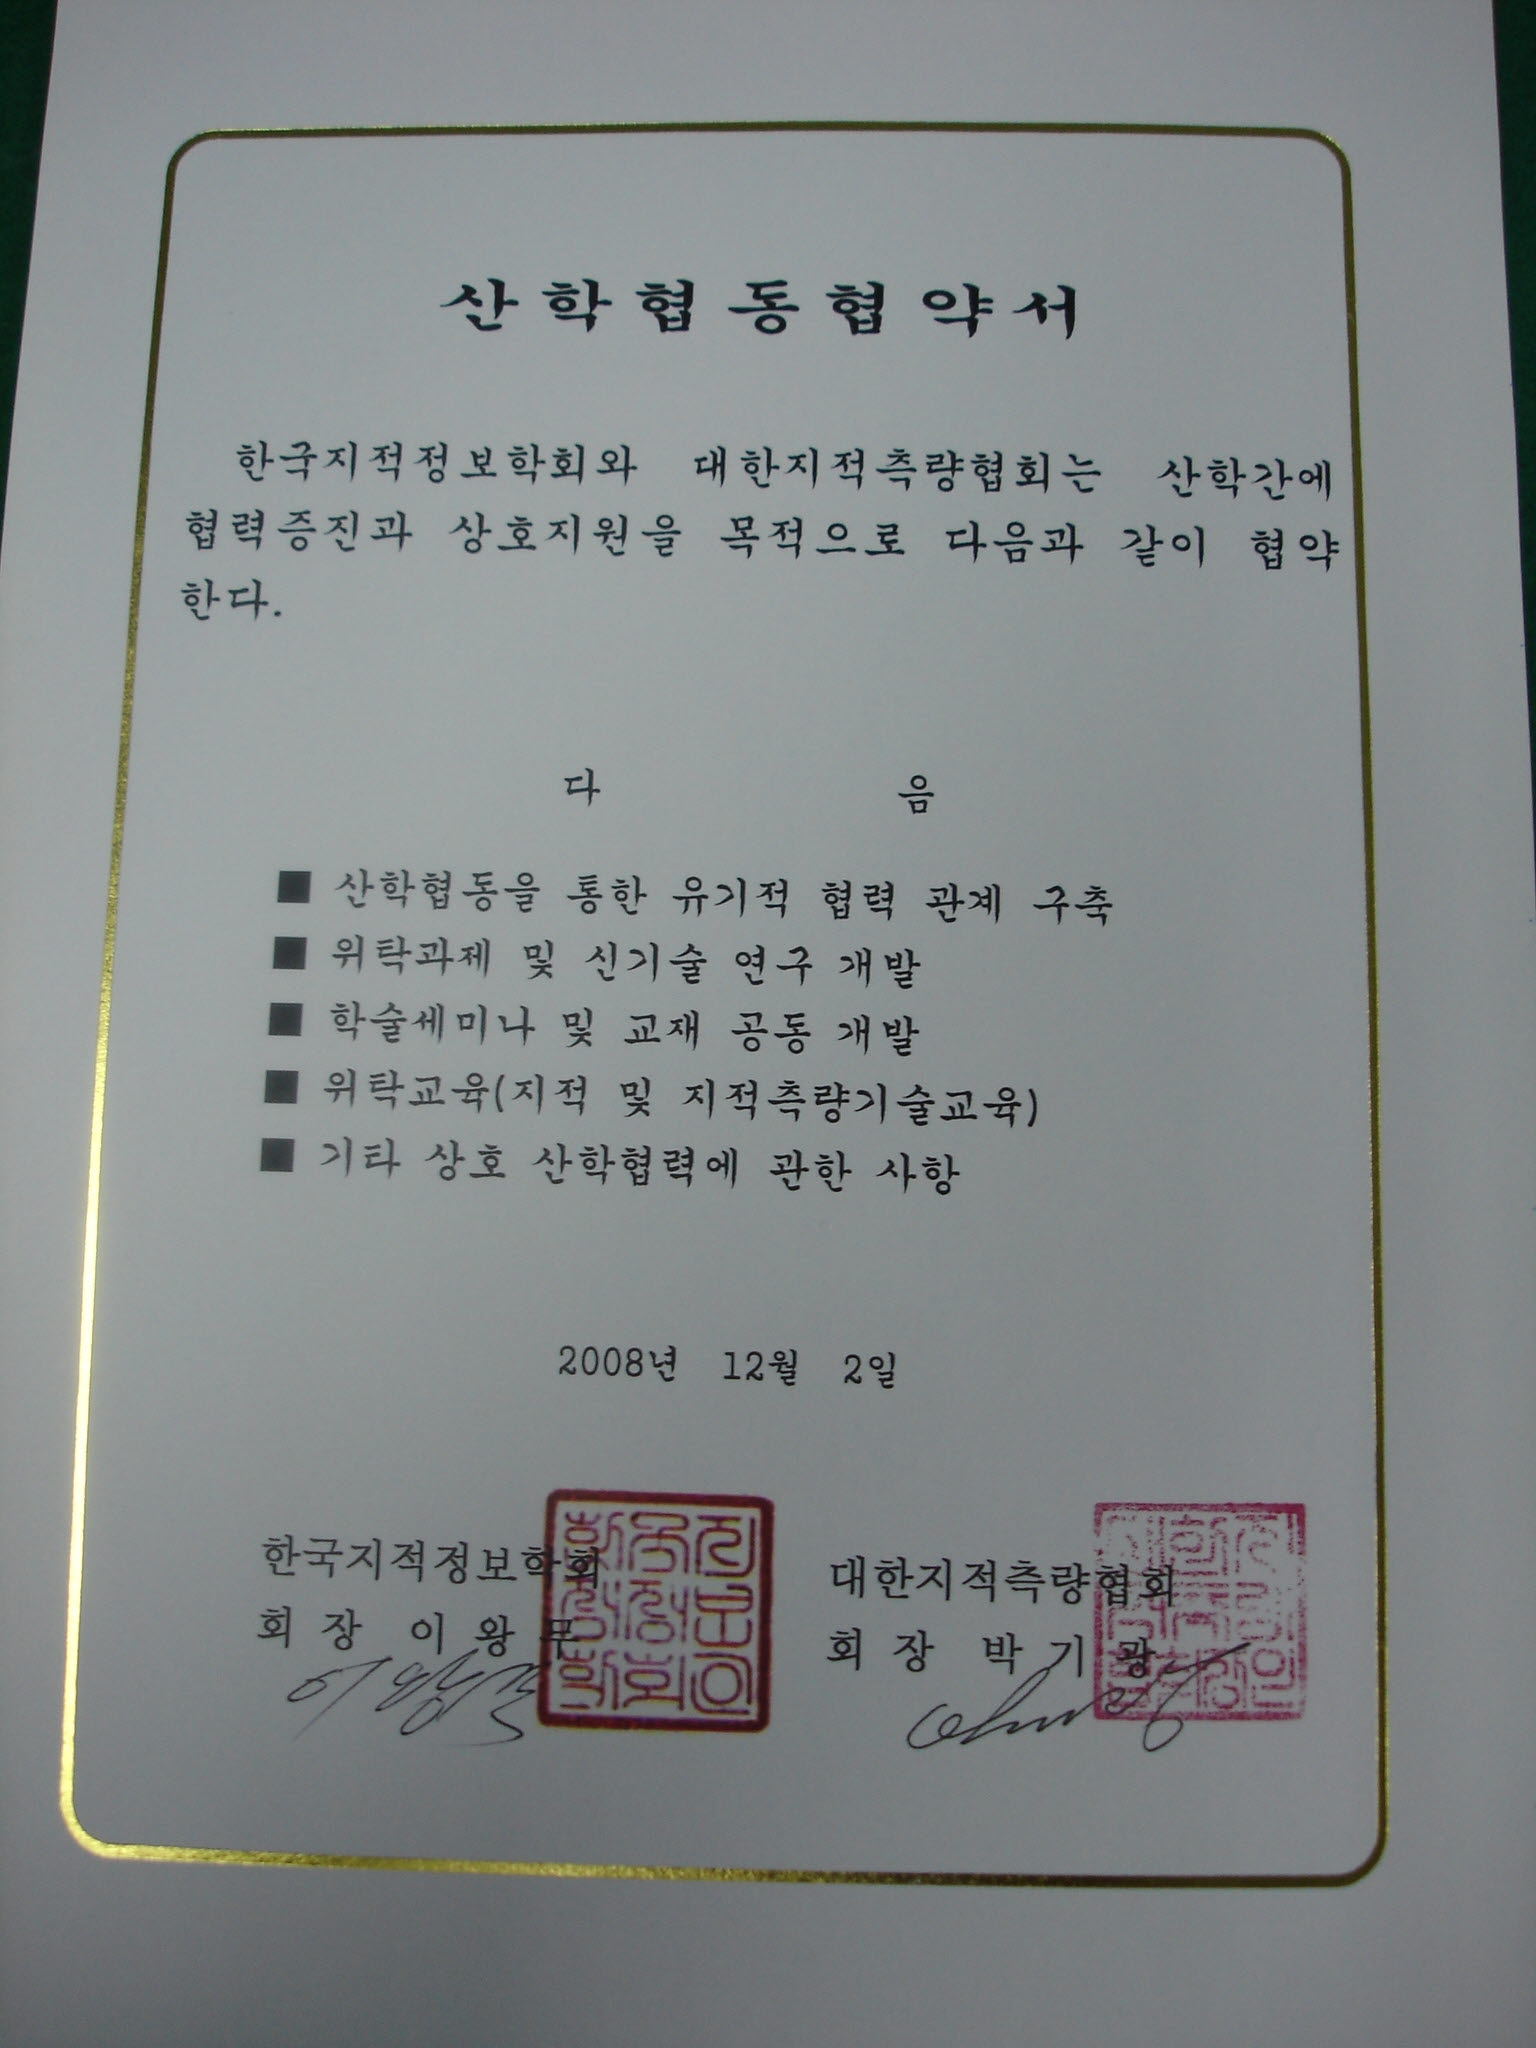 산학협동협약서
한국지적정보학회와 대한지적측량협회는 산학간에
협력증진과 상호지원을 목적으로 다음과 같이 협약
한다.
다 음
■ 산학협동을 통한 유기적 협력 관계 구축
■ 위탁과제 및 신기술 연구 개발
■ 학술세미나 및 교재 공동 개발
■ 위탁교육(지적 및 지적측량기술교육)
■ 기타 상호 산학협력에 관한 사항
2008년 12월 2일
한국지적정보학회
회 장 이 왕 무
대한지적측량협회
회 장 박 기 광